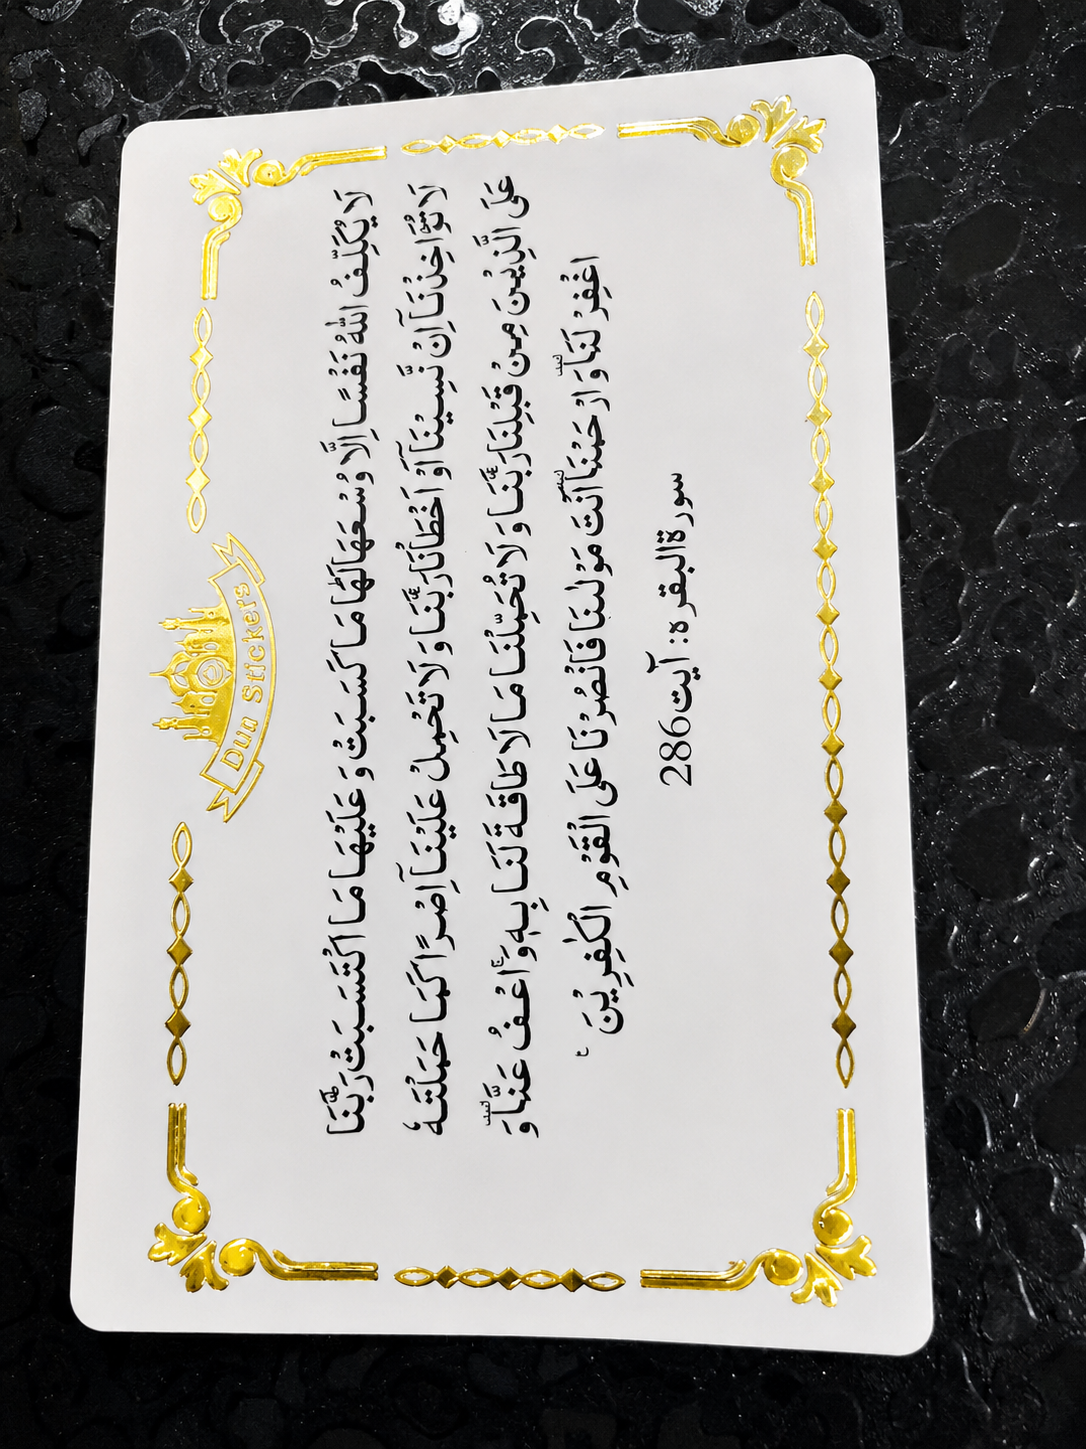 Dua Stickers
لَا يُكَلِّفُ اللّٰهُ نَفْسًا اِلَّا وُسْعَهَا لَهَا مَا كَسَبَتْ وَ عَلَيْهَا مَا اكْتَسَبَتْ رَبَّنَا
لَا تُؤَاخِذْنَاۤ اِنْ نَّسِيْنَاۤ اَوْ اَخْطَاْنَا رَبَّنَا وَ لَا تَحْمِلْ عَلَيْنَاۤ اِصْرًا كَمَا حَمَلْتَهٗ
عَلَى الَّذِيْنَ مِنْ قَبْلِنَا رَبَّنَا وَ لَا تُحَمِّلْنَا مَا لَا طَاقَةَ لَنَا بِهٖ وَ اعْفُ عَنَّا وَ
اغْفِرْ لَنَا وَ ارْحَمْنَا اَنْتَ مَوْلٰىنَا فَانْصُرْنَا عَلَى الْقَوْمِ الْكٰفِرِيْنَ
سورةالبقره: آيت286